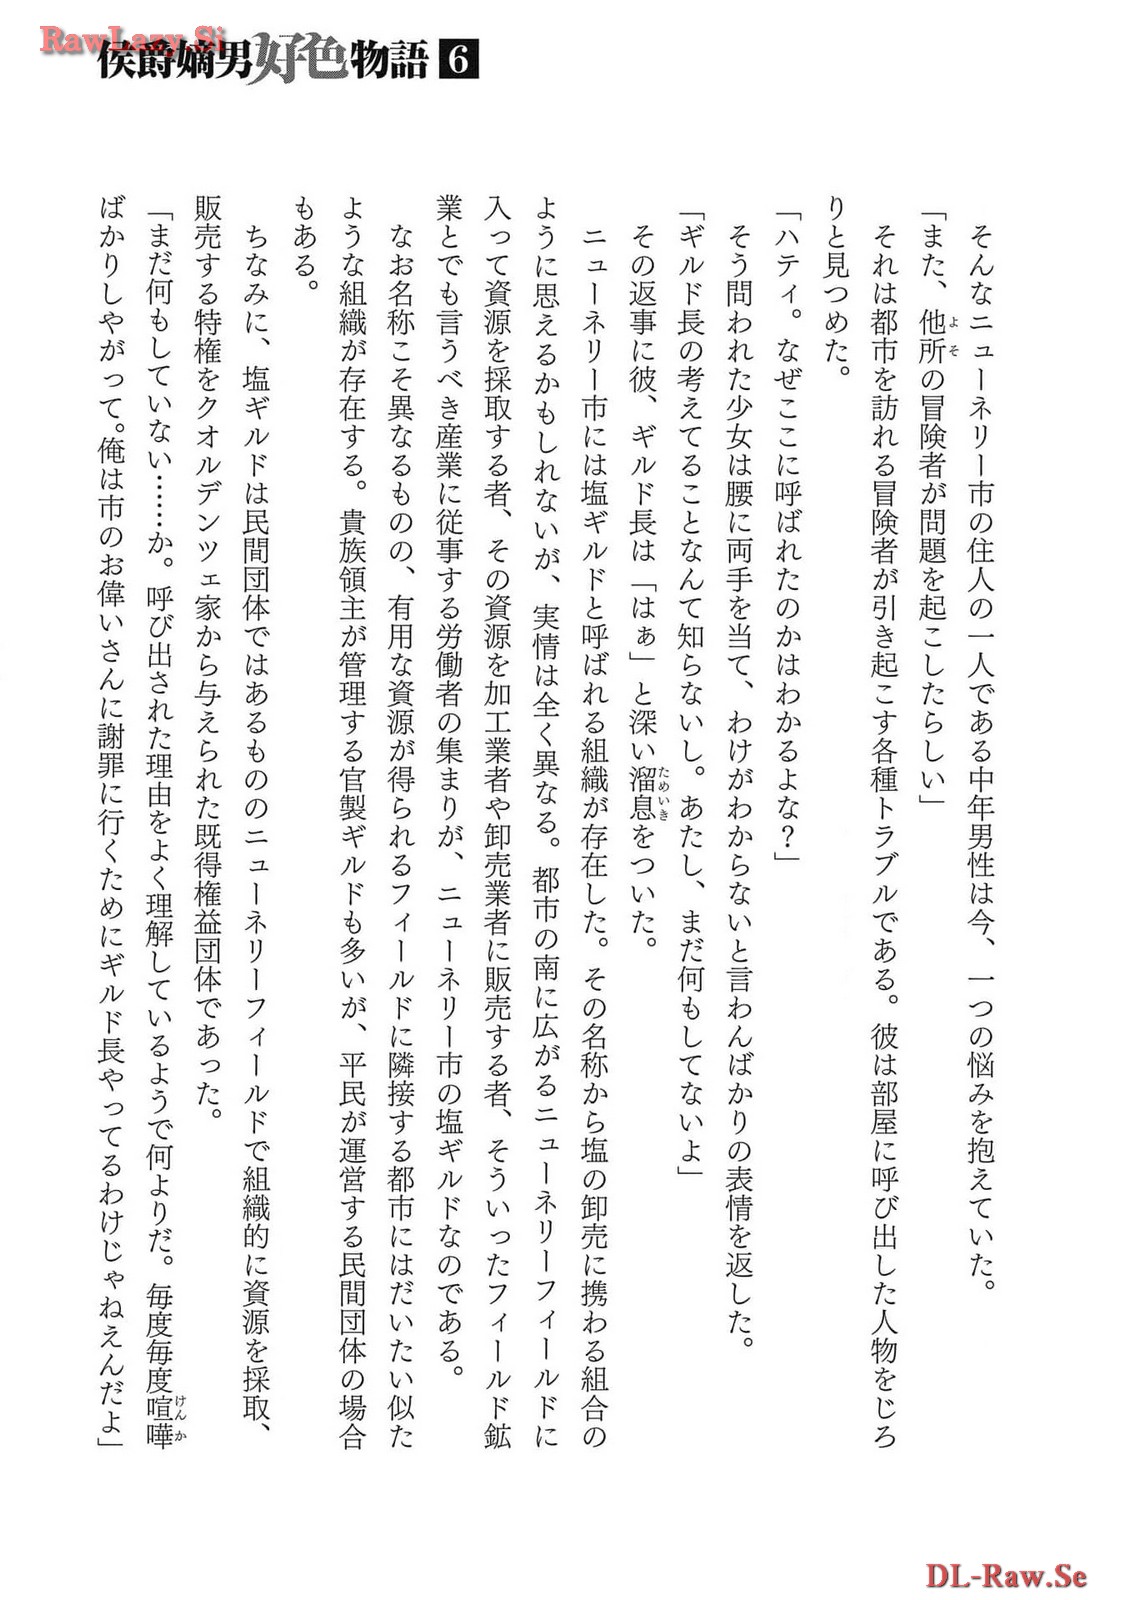 RawLazy.Si
侯爵嫡男好色物語 6
そんなニューネリー市の住人の一人である中年男性は今、一つの悩みを抱えていた。
「また、他所の冒険者が問題を起こしたらしい」
それは都市を訪れる冒険者が引き起こす各種トラブルである。彼は部屋に呼び出した人物をじろ
りと見つめた。
「ハティ。なぜここに呼ばれたのかはわかるよな?」
そう問われた少女は腰に両手を当て、わけがわからないと言わんばかりの表情を返した。
「ギルド長の考えてることなんて知らないし。あたし、まだ何もしてないよ」
その返事に彼、ギルド長は「はぁ」と深い溜息をついた。
ニューネリー市には塩ギルドと呼ばれる組織が存在した。その名称から塩の卸売に携わる組合の
ように思えるかもしれないが、実情は全く異なる。都市の南に広がるニューネリーフィールドに
入って資源を採取する者、その資源を加工業者や卸売業者に販売する者、そういったフィールド鉱
業とでも言うべき産業に従事する労働者の集まりが、ニューネリー市の塩ギルドなのである。
なお名称こそ異なるものの、有用な資源が得られるフィールドに隣接する都市にはだいたい似た
ような組織が存在する。貴族領主が管理する官製ギルドも多いが、平民が運営する民間団体の場合
もある。
ちなみに、塩ギルドは民間団体ではあるもののニューネリーフィールドで組織的に資源を採取、
販売する特権をクオルデンツェ家から与えられた既得権益団体であった。
「まだ何もしていない……か。呼び出された理由をよく理解しているようで何よりだ。毎度毎度喧嘩
ばかりしやがって。俺は市のお偉いさんに謝罪に行くためにギルド長やってるわけじゃねえんだよ」
よそ
ためいき
けんか
DL-Raw.Se